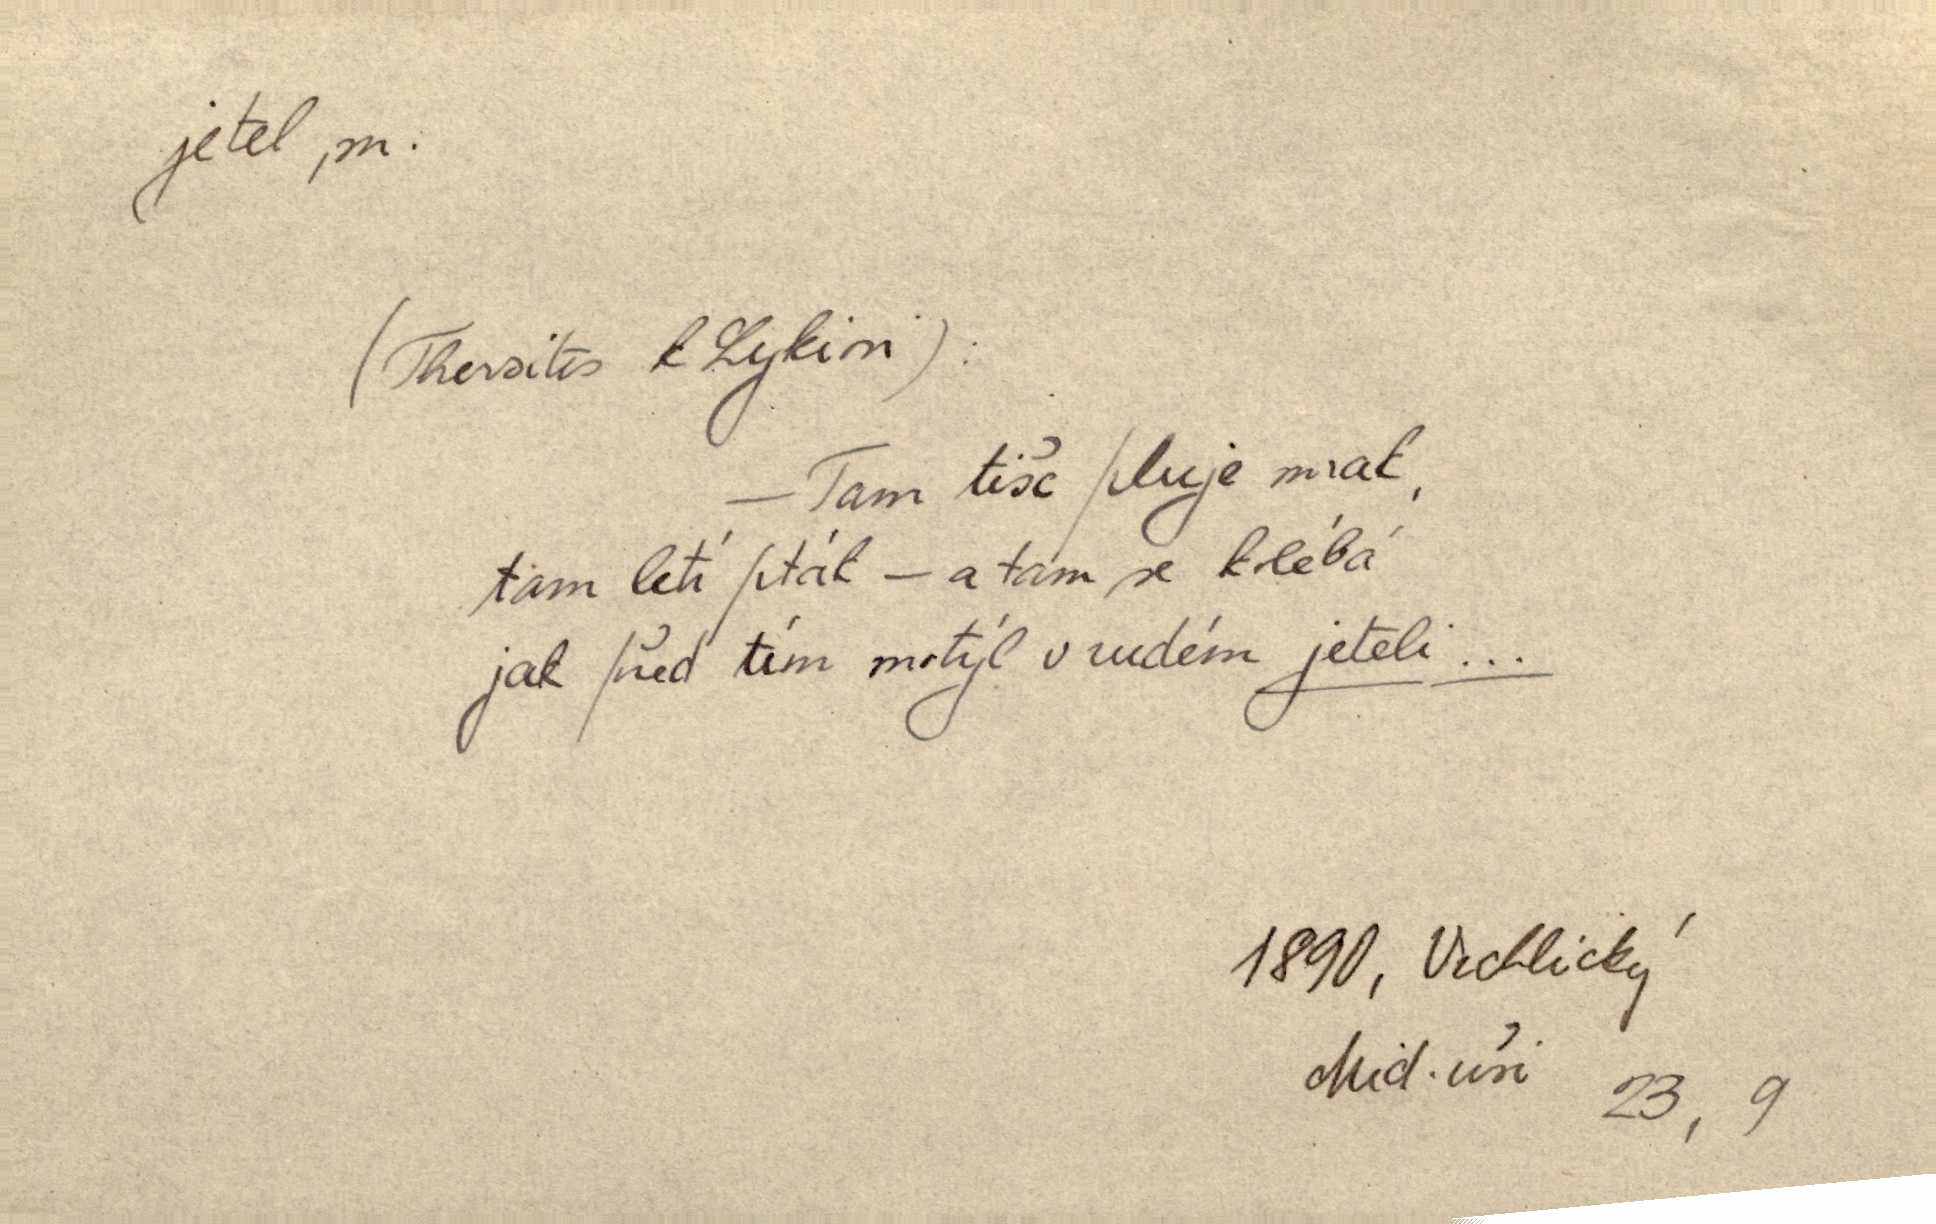 jetel, m.
(Thersites k Lykimi):
— Tam tisc pluje mrak,
tam letí pták — a tam se kolébá
jak před tím motýl v rudém jeteli...
1890, Vrchlický
Mid. uši 23, 9